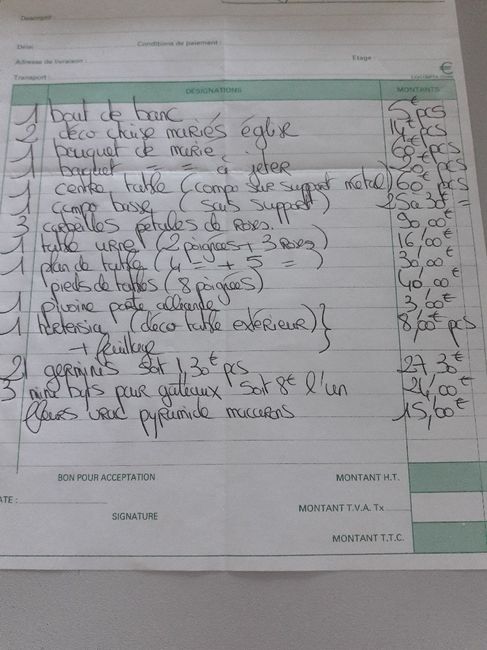 Descriptif :
Délai : Conditions de paiement :
Adresse de livraison : Etage :
Transport :
DÉSIGNATIONS MONTANTS
1 bout de banc 5€ pcs
2 déco chaise mariés église 14€ pcs
1 bouquet de mariée 68€ pcs
1 = = à jeter 20€ pcs
1 centre table (compo sur support métal) 60€ pcs
1 compo basse (sans support) 25 a 30€ =
3 corbeilles pétales de roses. 90,00€
1 table urne (2 poignées + 3 roses) 16,00€
1 plan de table (4 = + 5 = ) 30,00€
pieds de tables (8 poignées) 40,00€
1 pivoine porte alliance 3,00€
1 (déco table extérieur) } 8,00€ pcs
+ feuillage
21 germinis soit 1,30€ pcs 27,30€
3 mini pour gâteaux soit 8€ l'un 24,00€
fleurs vrac pyramide macarons 15,00€
BON POUR ACCEPTATION MONTANT H.T.
DATE : MONTANT T.V.A. Tx
SIGNATURE
MONTANT T.T.C.